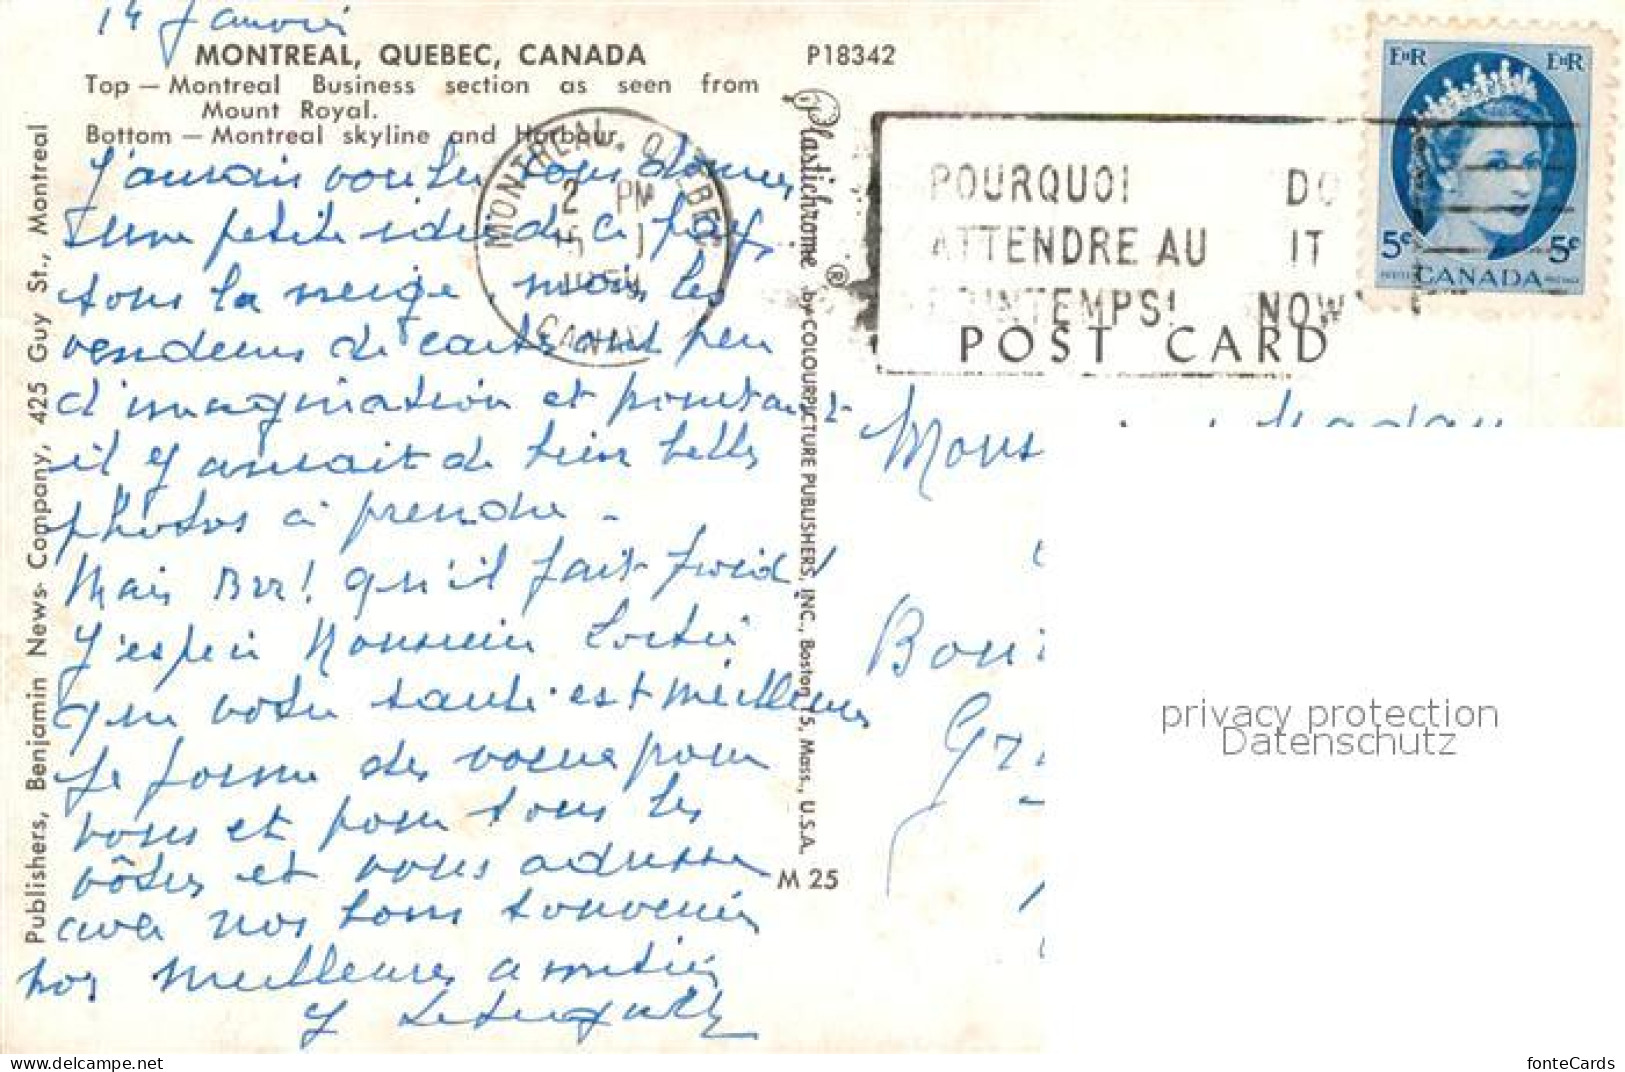 14 Janvier
MONTREAL, QUEBEC, CANADA
Top — Montreal Business section as seen from
Mount Royal.
Bottom — Montreal skyline and Harbour.
Publishers, Benjamin News Company, 425 Guy St., Montreal
J'aurais voulu vous donner
une petite idée de ce pays
sous la neige, mais les
vendeurs de cartes ont peu
d'imagination et pourtant
il y aurait de bien belles
photos à prendre -
Mais Brr! qu'il fait froid!
J'espère Monsieur
que votre santé est meilleure
Je forme des voeux pour
vous et pour tous les
vôtres et vous adresse
avec nos bons souvenirs
nos meilleures amitiés
P18342
Plastichrome ® by COLOURPICTURE PUBLISHERS, INC., Boston 15, Mass., U.S.A.
M 25
MONTREAL, QUEBEC
2 PM
CANADA
POURQUOI DO
ATTENDRE AU IT
PRINTEMPS! NOW
POST CARD
EIIR EIIR
5¢ 5¢
CANADA
privacy protection
Datenschutz
fonteCards